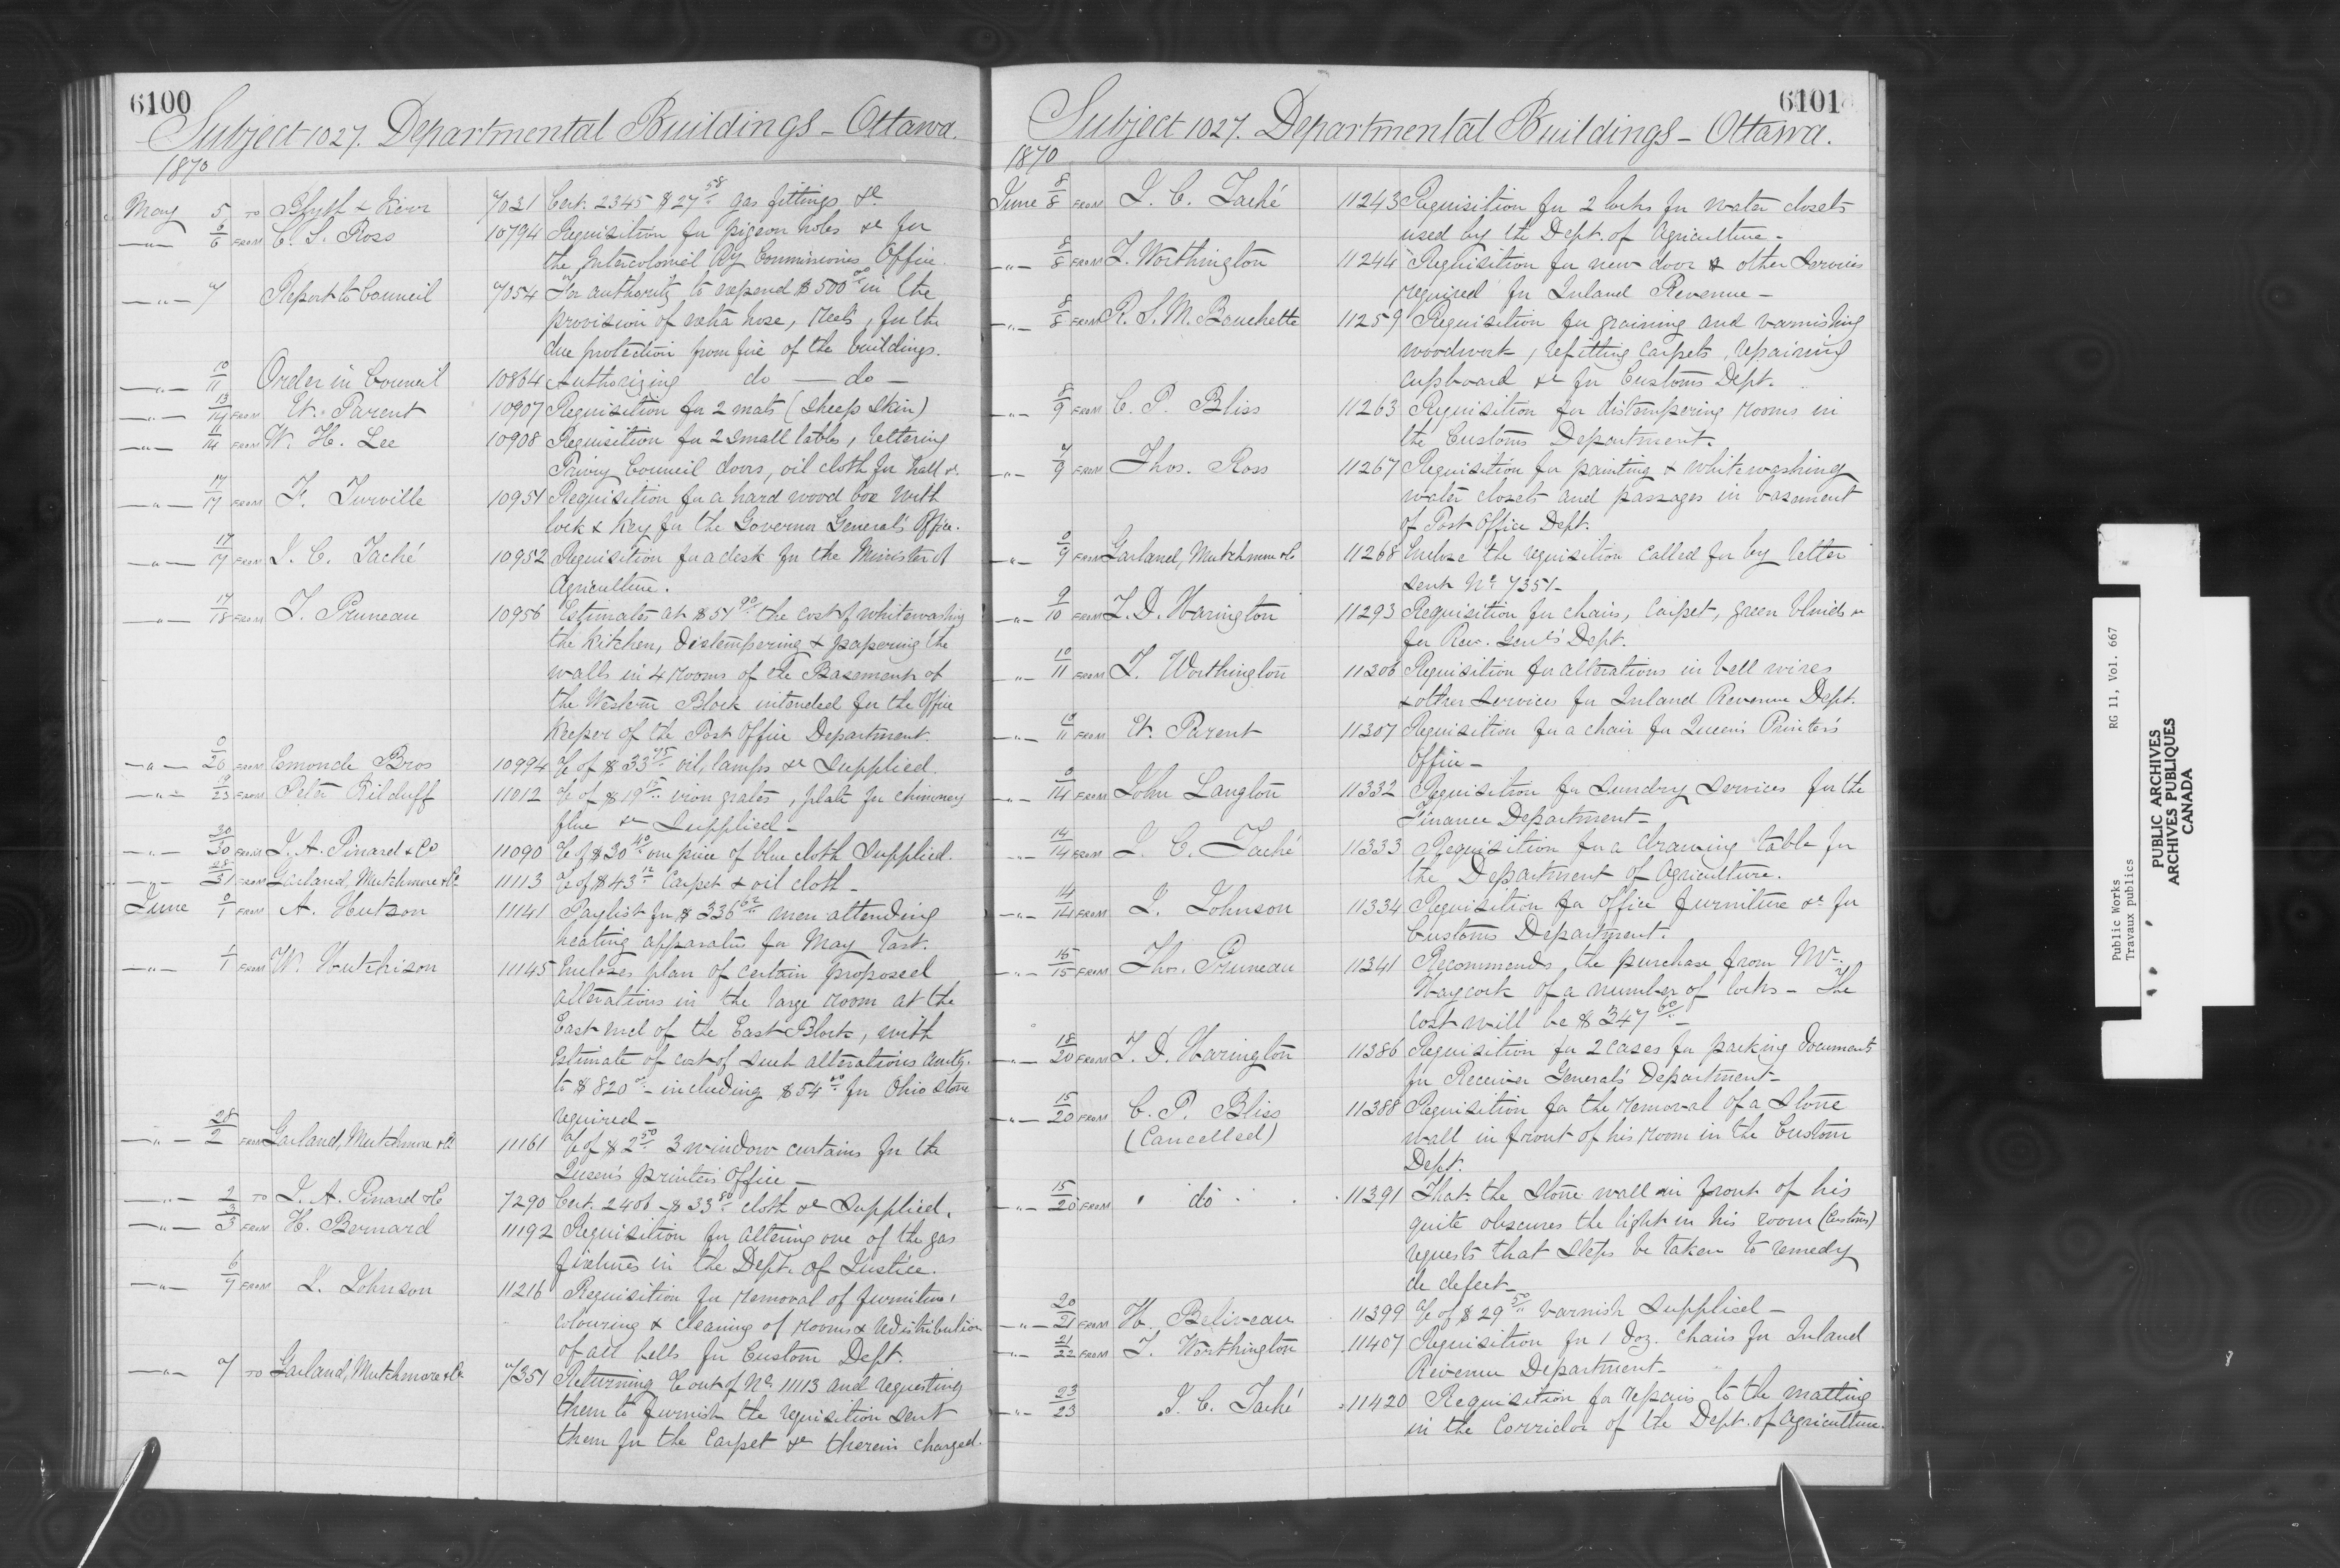 6100
Subject 1027. Departmental Buildings - Ottawa.
1870
May 5 TO Blyth & Kerr 7031 Cert. 2345 $27 58 gas fittings &c
6/6 FROM C. S. Ross 10794 Requisition for pigeon holes &c for
the Intercolonial Ry Commissioners Office.
" 7 Report to Council 7054 For authority to expend $500 00 in the
provision of extra hose, reels, for the
due protection from fire of the buildings.
" 10/11 Order in Council 10864 Authorizing do — do —
" 13/14 FROM Et. Parent 10907 Requisition for 2 mats (sheep skin)
" 11/14 FROM W. H. Lee 10908 Requisition for 2 small tables, lettering
Privy Council doors, oil cloth for hall &c
" 17/17 FROM F. Turville 10951 Requisition for a hard wood box with
lock & key for the Governor General's Office.
" 17/17 FROM J. C. Taché 10952 Requisition for a desk for the Minister of
Agriculture.
" 17/18 FROM T. Pruneau 10956 Estimates at $51 90 the cost of whitewashing
the kitchen, distempering & papering the
walls in 4 rooms of the Basement of
the Western Block intended for the Office
Keeper of the Post Office Department.
" 0/20 FROM Esmonde Bros 10994 a/c of $33 75 oil, lamps &c supplied.
" 19/23 FROM Peter Kilduff 11012 a/c of $19 15 iron grates, plate for chimney
flue &c supplied -
" 30/30 FROM J. A. Pinard & Co 11090 a/c of $30 40 one piece of blue cloth supplied.
" 28/31 FROM Garland, Mutchmore & Co 11113 a/c of $43 12 Carpet & oil cloth -
June 0/1 FROM A. Hutson 11141 Paylist for $336 62 men attending
heating apparatus for May last.
" 1/1 FROM W. Hutchison 11145 Encloses plan of certain proposed
alterations in the large room at the
East end of the East Block, with
estimate of cost of such alterations amtg.
to $820 00 - including $54 00 for Ohio stone
required -
" 28/2 FROM Garland, Mutchmore & Co 11161 a/c of $2 50 3 window curtains for the
Queen's printers Office -
" 2 TO J. A. Pinard & Co 7290 Cert. 2406 - $33 80 cloth &c supplied.
" 3/3 FROM H. Bernard 11192 Requisition for altering one of the gas
fixtures in the Dept. of Justice.
" 6/7 FROM J. Johnson 11216 Requisition for removal of furniture,
colouring & cleaning of rooms & redistribution
of all bells for Custom Dept.
" 7 TO Garland, Mutchmore & Co 7351 Returning a/c out of No. 11113 and requesting
them to furnish the requisition sent
them for the Carpet &c therein charged.
6101
Subject 1027. Departmental Buildings - Ottawa.
1870
June 8/8 FROM J. C. Taché 11243 Requisition for 2 locks for water closets
used by the Dept. of Agriculture -
" 8/8 FROM T. Worthington 11244 Requisition for new door & other services
required for Inland Revenue -
" 8/8 FROM R. S. M. Bouchette 11259 Requisition for graining and varnishing
woodwork, refitting carpets, repairing
cupboard &c for Customs Dept.
" 8/9 FROM C. P. Bliss 11263 Requisition for distempering rooms in
the Customs Department.
" 7/9 FROM Thos. Ross 11267 Requisition for painting & whitewashing
water closets and passages in basement
of Post Office Dept.
" 0/9 FROM Garland, Mutchmore & Co 11268 Enclose the requisition called for by letter
sent No. 7351 -
" 9/10 FROM T. D. Harington 11293 Requisition for chairs, carpet, green blinds &c
for Rec. Genl's Dept.
" 10/11 FROM T. Worthington 11306 Requisition for alterations in bell wires
& other services for Inland Revenue Dept.
" 10/11 FROM Et. Parent 11307 Requisition for a chair for Queen's Printer's
Office -
" 0/14 FROM John Langton 11332 Requisition for sundry services for the
Finance Department -
" 14/14 FROM J. C. Taché 11333 Requisition for a drawing table for
the Department of Agriculture.
" 14/14 FROM J. Johnson 11334 Requisition for office furniture &c for
Customs Department.
" 15/15 FROM Thos. Pruneau 11341 Recommends the purchase from Mr.
Haycock of a number of locks - The
cost will be $347 60 -
" 18/20 FROM T. D. Harington 11386 Requisition for 2 cases for packing documents
for Receiver General's Department -
" 15/20 FROM C. P. Bliss 11388 Requisition for the removal of a stone
(Cancelled) wall in front of his room in the Custom
Dept.
" 15/20 FROM " do 11391 That the stone wall in front of his
quite obscures the light in his room (Customs)
requests that steps be taken to remedy
de defect -
" 20/21 FROM H. Beliveau 11399 a/c of $29 50 varnish supplied -
" 21/22 FROM T. Worthington 11407 Requisition for 1 doz. chairs for Inland
Revenue Department -
" 23/23 J. C. Taché 11420 Requisition for repairs to the matting
in the Corridor of the Dept. of Agriculture.
Public Works RG 11, Vol. 667
Travaux publics
PUBLIC ARCHIVES
ARCHIVES PUBLIQUES
CANADA